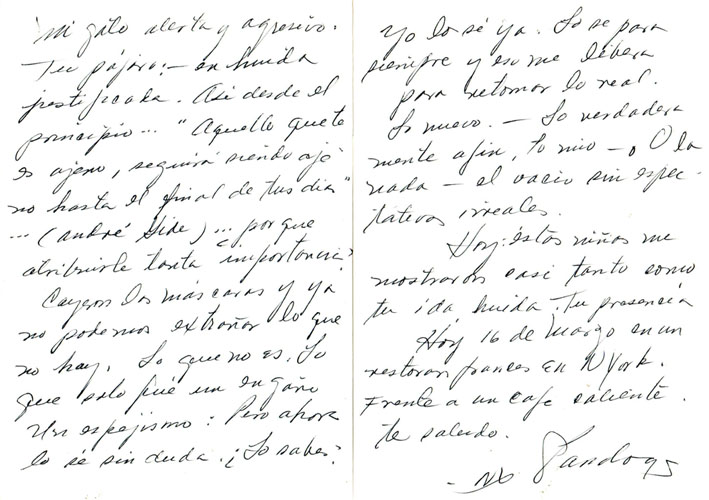 Mi gato alerta y agresivo.
Tu pájaro:- en huida
justificada. Asi desde el
principio... "Aquello que te
es ajeno, seguirá siendo aje
no hasta el final de tus dias"
... (andré Gide)... porque
atribuirle tanta importancia?
Cayeron las máscaras y ya
no podemos extrañar lo que
no hay. Lo que no es. Lo
que solo fué un engaño
Un espejismo: Pero ahora
lo se sin duda. ¿Lo sabes?
Yo lo sé ya. Lo se para
siempre y eso me libera
para retomar lo real.
Lo nuevo. - Lo verdadera
mente afin, lo mio -. O la
nada - el vacio sin espec-
tativas irreales.
Hoy: éstos niños me
mostraron casi tanto como
tu ida huida. Tu presencia
Hoy 16 de Marzo en un
restoran frances en N York.
Frente a un cafe caliente.
te saludo.